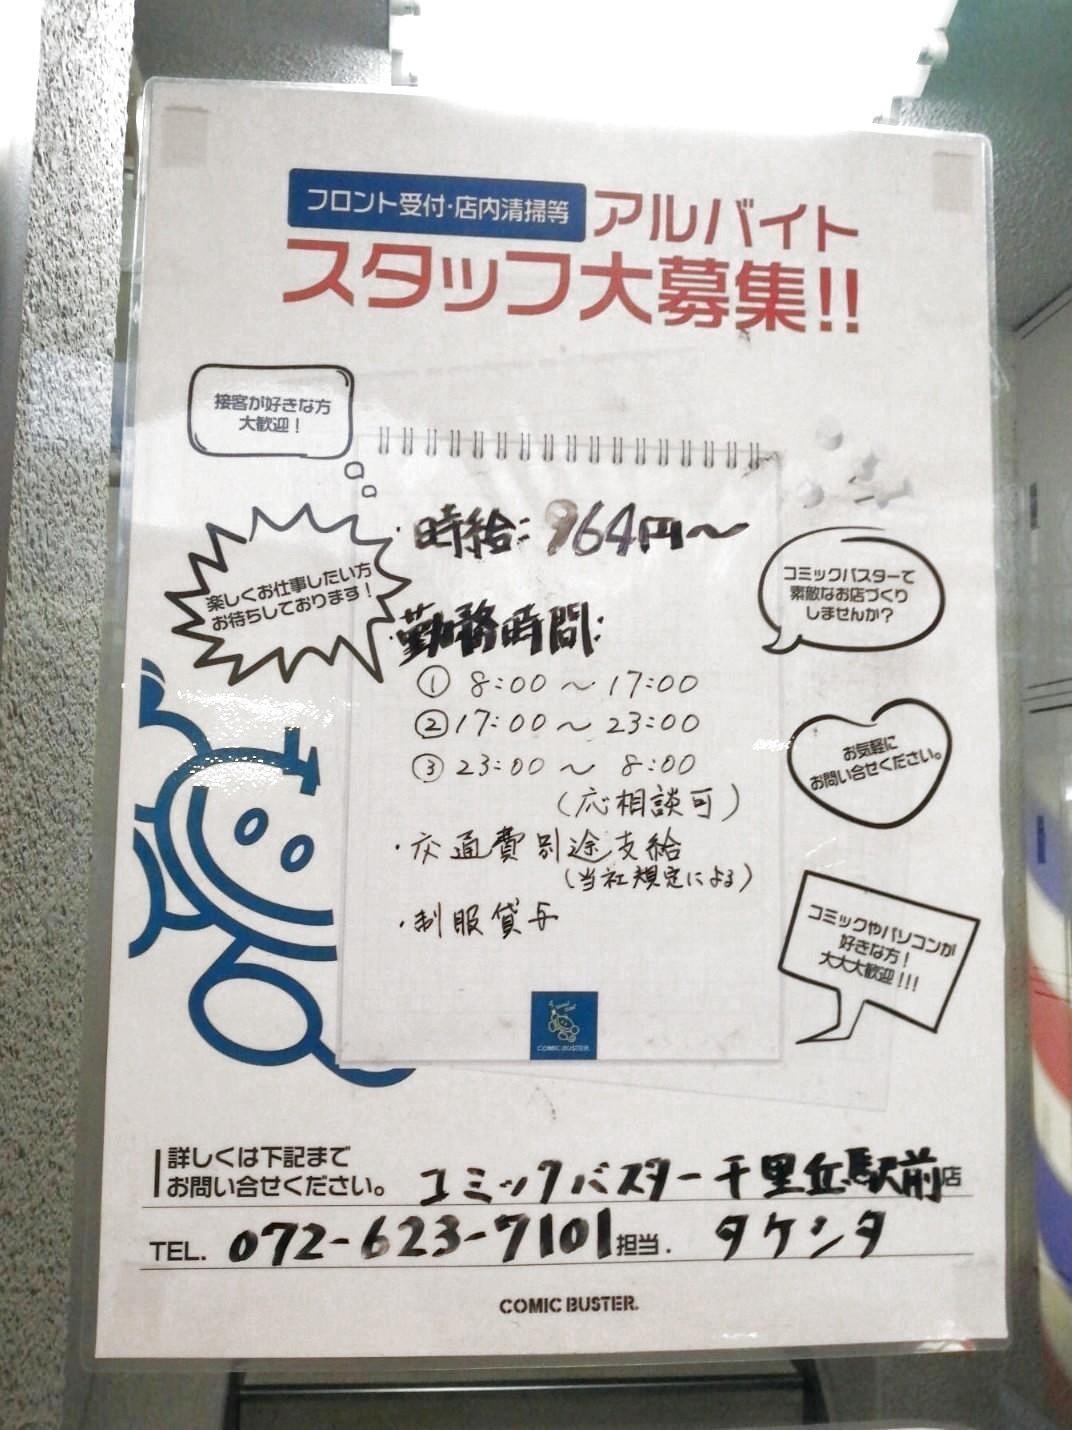 フロント受付・店内清掃等 アルバイト
スタッフ大募集!!
接客が好きな方
大歓迎！
楽しくお仕事したい方
お待ちしております！
・時給：964円～
・勤務時間：
① 8:00 ～ 17:00
② 17:00 ～ 23:00
③ 23:00 ～ 8:00
（応相談可）
・交通費別途支給
（当社規定による）
・制服貸与
コミックバスターで
素敵なお店づくり
しませんか？
お気軽に
お問い合せください。
コミックやパソコンが
好きな方！
大大大歓迎！！！
COMIC BUSTER
詳しくは下記まで
お問い合せください。 コミックバスター千里丘駅前店
TEL. 072-623-7101 担当. タケシタ
COMIC BUSTER.